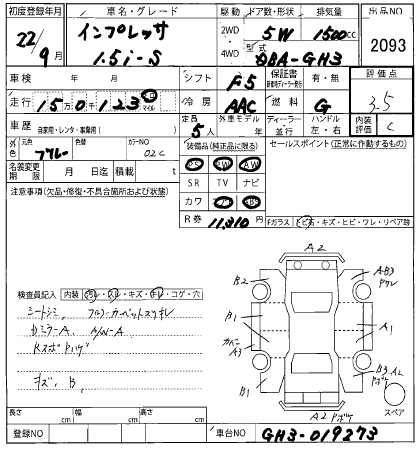 初度登録年月 車名・グレード 駆動 ドア数・形状 排気量 出品NO
22/9月 インプレッサ 1.5i-S 2WD 4WD 5W 1500cc 2093
型式 DBA-GH3
車検 年 月 シフト F5 保証書 有・無 評価点
走行 150,123 km マイル 冷房 AAC 燃料 G 3.5
車歴 自家用・レンタ・事業用( ) 定員 5人 外車モデル 年 ディーラー 並行 ハンドル 左・右 内装評価 C
外色 元色 グレー 色替 カラーNO 02C 装備品(純正品に限る) セールスポイント(正常に作動するもの)
PS PW AW
名義変更期限 月 日迄 積載 t SR TV ナビ
注意事項(欠品・修復・不具合箇所および状態) カワ
R券 11,310円 Fガラス トビ石・キズ・ヒビ・ワレ・リペア跡
検査員記入 内装 汚レ・スレ・キズ・キレ・コゲ・穴
シートシミ フルフロ-カーペットスリキレ
カミラーA A/W-A
キズ、B
A2
B2 A・B3
B1 A1
A3
B1 B3、A2
A2
スペア
長さ cm 幅 cm 高さ cm
登録NO 車台NO GH3-019273